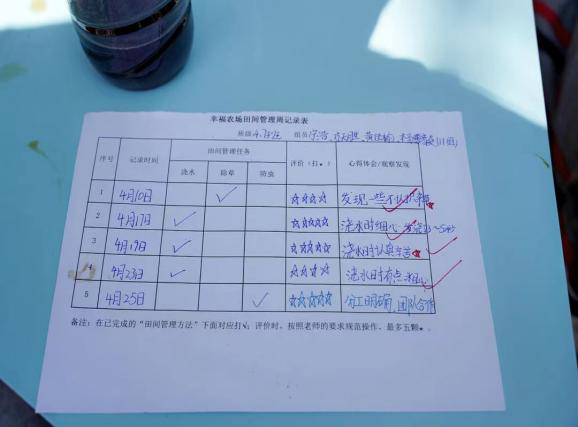 幸福农场田间管理周记录表
班级 组员
序号 记录时间 田间管理任务 评价（打★） 心得体会/观察发现
浇水 除草 防虫
1 4月10日 ✓ ☆☆☆☆ 发现一些不认识
2 4月17日 ✓ ☆☆☆☆ 浇水时细心
3 4月19日 ✓ ☆☆☆☆ 浇水时认真
4 4月23日 ✓ ☆☆☆☆ 浇水时有点粗心
5 4月25日 ✓ ☆☆☆☆ 分工明确，团队合作
备注：在已完成的“田间管理方法”下面对应打√；评价时，按照老师的要求规范操作，最多五颗★。